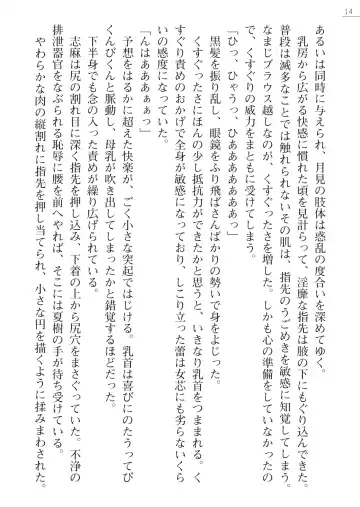 14
あるいは同時に与えられ、月見の肢体は惑乱の度合いを深めてゆく。
乳房から広がる快感に慣れた頃を見計らって、淫靡な指先は腋の下にもぐり込んできた。
普段は滅多なことでは触れられないその肌は、指先のうごめきを敏感に知覚してしまう。
なまじブラウス越しなのが、くすぐったさを増した。しかも心の準備をしていなかったの
で、くすぐりの威力をまともに受けてしまう。
「ひっ、ひゃうっ、ひああああああっ！」
黒髪を振り乱し、眼鏡をふり飛ばさんばかりの勢いで身をよじった。
くすぐったさにほんの少し抵抗力ができたかと思うと、いきなり乳首をつままれる。く
すぐり責めのおかげで全身が敏感になっており、しこり立った蕾は女芯にも劣らないくら
いの感度になっていた。
「んはあああぁぁっ！」
予想をはるかに超えた快楽が、ごく小さな突起ではじける。乳首は喜びにのたうってび
くんびくんと脈動し、母乳が吹き出してしまったかと錯覚するほどだった。
下半身でも念の入った責めが繰り広げられている。
志麻は尻の割れ目に深く指先を押し込み、下着の上から尻穴をまさぐっていた。不浄の
排泄器官をなぶられる恥辱に腰を前へやれば、そこには夏樹の手が待ち受けている。
やわらかな肉の縦割れに指先を押し当てられ、小さな円を描くように揉みまわされた。